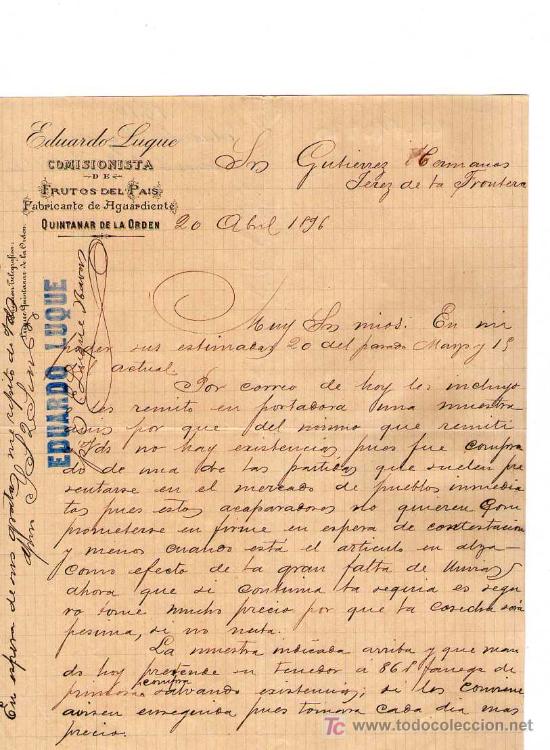 Eduardo Luque
COMISIONISTA
DE
FRUTOS DEL PAIS
Fabricante de Aguardiente
QUINTANAR DE LA ORDEN
Srs Gutierrez Hermanos
Jerez de la Frontera
20 Abril 1896
Muy Srs mios: En mi
poder sus estimadas 20 del pasado Marzo y 15
actual.
Por correo de hoy les incluyo
remito en portadora una muestra
por que del mismo que remiti
Vds no hay existencias, pues fue compra
do de una de las partidas que suelen pre
sentarse en el mercado de pueblos inmedia
tos pues estos acaparadores no quieren Com
prometerse en firme en espera de contestacion
y menos cuando está el articulo en alza
como efecto de la gran falta de lluvias
ahora que si continua la sequia es segu
ro tome mucho precio por que la cosecha será
pesima, si no nula.
La muestra indicada arriba y que man
do hoy pretende su tenedor á 86 fanega de
compra
salvando existencias; si les conviene
avisen enseguida pues tomara cada dia mas
precio.
En espera de sus gratas me repito de Vds
Luque Quintanar de la Orden
EDUARDO LUQUE
TC www.todocoleccion.net